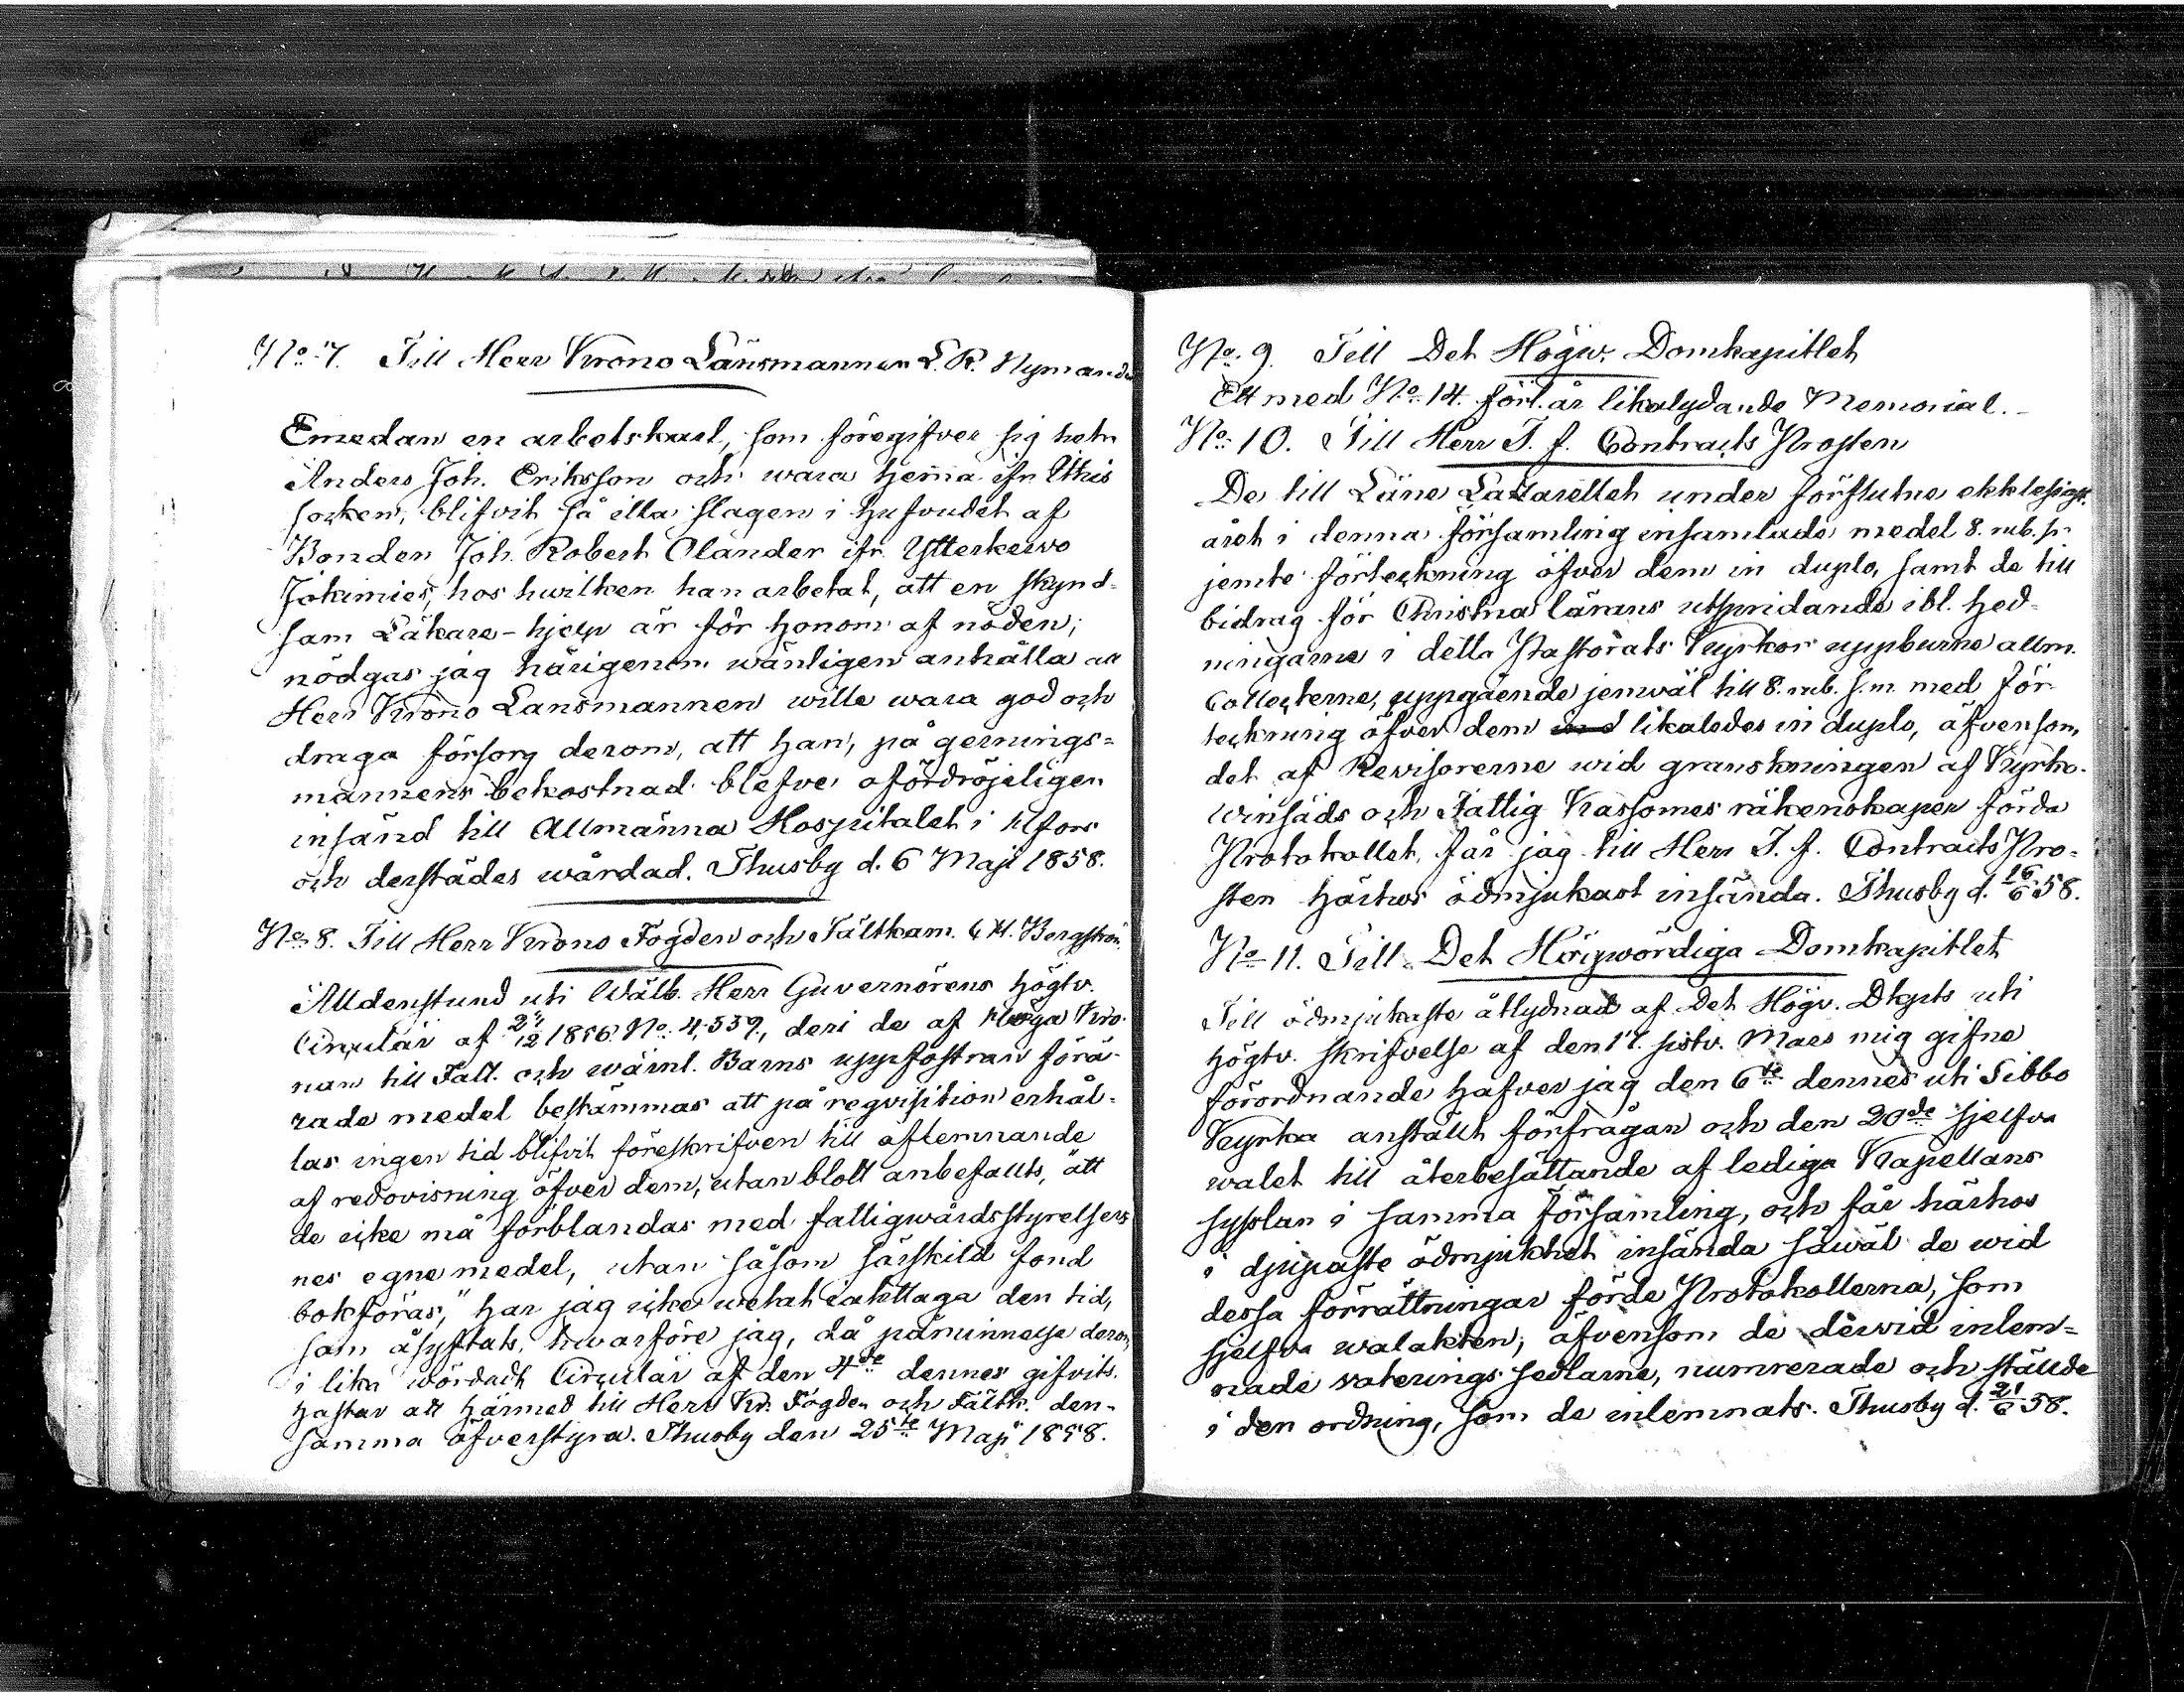 No 7. Till Herr Krono Länsmannen L. R. Nymander
Emedan en arbetskarl, som föregifver sig heta
Anders Joh. Eriksson och wara hema ifr. Ithis
socken, blifvit så illa slagen i hufvudet af
Bonden Joh. Robert Olander ifr. Ytterkerwo
Jokimies, hos hwilken han arbetat, att en skynd-
sam Läkare-hjelp är för honom af nöden;
nödgas jag härigenom wänligen anhålla att
Herr Krono Länsmannen wille wara god och
draga försorg derom, att han, på gernings=
mannens bekostnad blefve ofördröjeligen
insänd till Allmänna Hospitalet i Hfors
och derstädes wårdad. Thusby d. 6 Maji 1858.
No 8. Till Herr Krono Fogden och Fältkam. C. H. Bergström
Alldenstund uti Wälb. Herr Guvernörens högtv.
Circulär af 12 1856 No 4,559, deri de af Höga Kro-
nan till Fatt. och wärnl. Barns uppfostran förä-
rade medel bestämmas att på reqvisition erhål-
las ingen tid blifvit föreskrifven till aflemnande
af redovisning öfver dem, utan blott anbefallts, "att
de icke må förblandas med fattigwårdsstyrelser-
nes egne medel, utan såsom särskild fond
bokföras," har jag icke wetat iakttaga den tid,
som åsyftats, hwarföre jag, då påminnelse derom,
i lika wördadt Circulär af den 4de dennes gifvits.
hastar att härmed till Herr Kr. Fogden och Fältk. den-
samma öfverstyra. Thusby den 25te Maji 1858.
No 9. Till Det Högw. Domkapitlet
Ett med No 14. förl. år likalydande Memorial.
No 10. Till Herr T. f. Contracts Prosten
De till Läne Lazarettet under förflutne ekklesiast.
året i denna församling insamlade medel 8. rub. sr
jemte förteckning öfver dem in duplo, samt de till
bidrag för Christna lärans utspridande ibl. hed-
ningarne i detta Pastorats Kyrkor uppburne allm.
Collecterne, uppgående jemwäl till 8. rub. s.m. med för-
teckning öfver dem likaledes in duplo, äfvensom,
det af Revisorerne wid granskningen af Kyrko-
winsäds och Fattig Kassornes räkenskaper förda
Protokollet, får jag till Herr T. f. Contracts Pro-
sten härhos ödmjukast insända. Thusby d. 16/6 58.
No 11. Till Det Högwördiga Domkapitlet
Till ödmjukaste åtlydnad af Det Högv. Dkpts uti
högtv. skrifvelse af den 17. sistv. Maes mig gifne
förordnande hafver jag den 6te dennes uti Sibbo
Kyrka anställt förfrågan och den 20de sjelfva
walet till återbesättande af lediga Kapellans
sysslan i samma församling, och får härhos
i djupaste ödmjukhet insända såwäl de wid
dessa förrättningar förde Protokollerna, som
sjelfva walakten, äfvensom de derwid inlem=
nade voterings sedlarne, numrerade och ställde
i den ordning, som de inlemnats. Thusby d. 21/6 58.